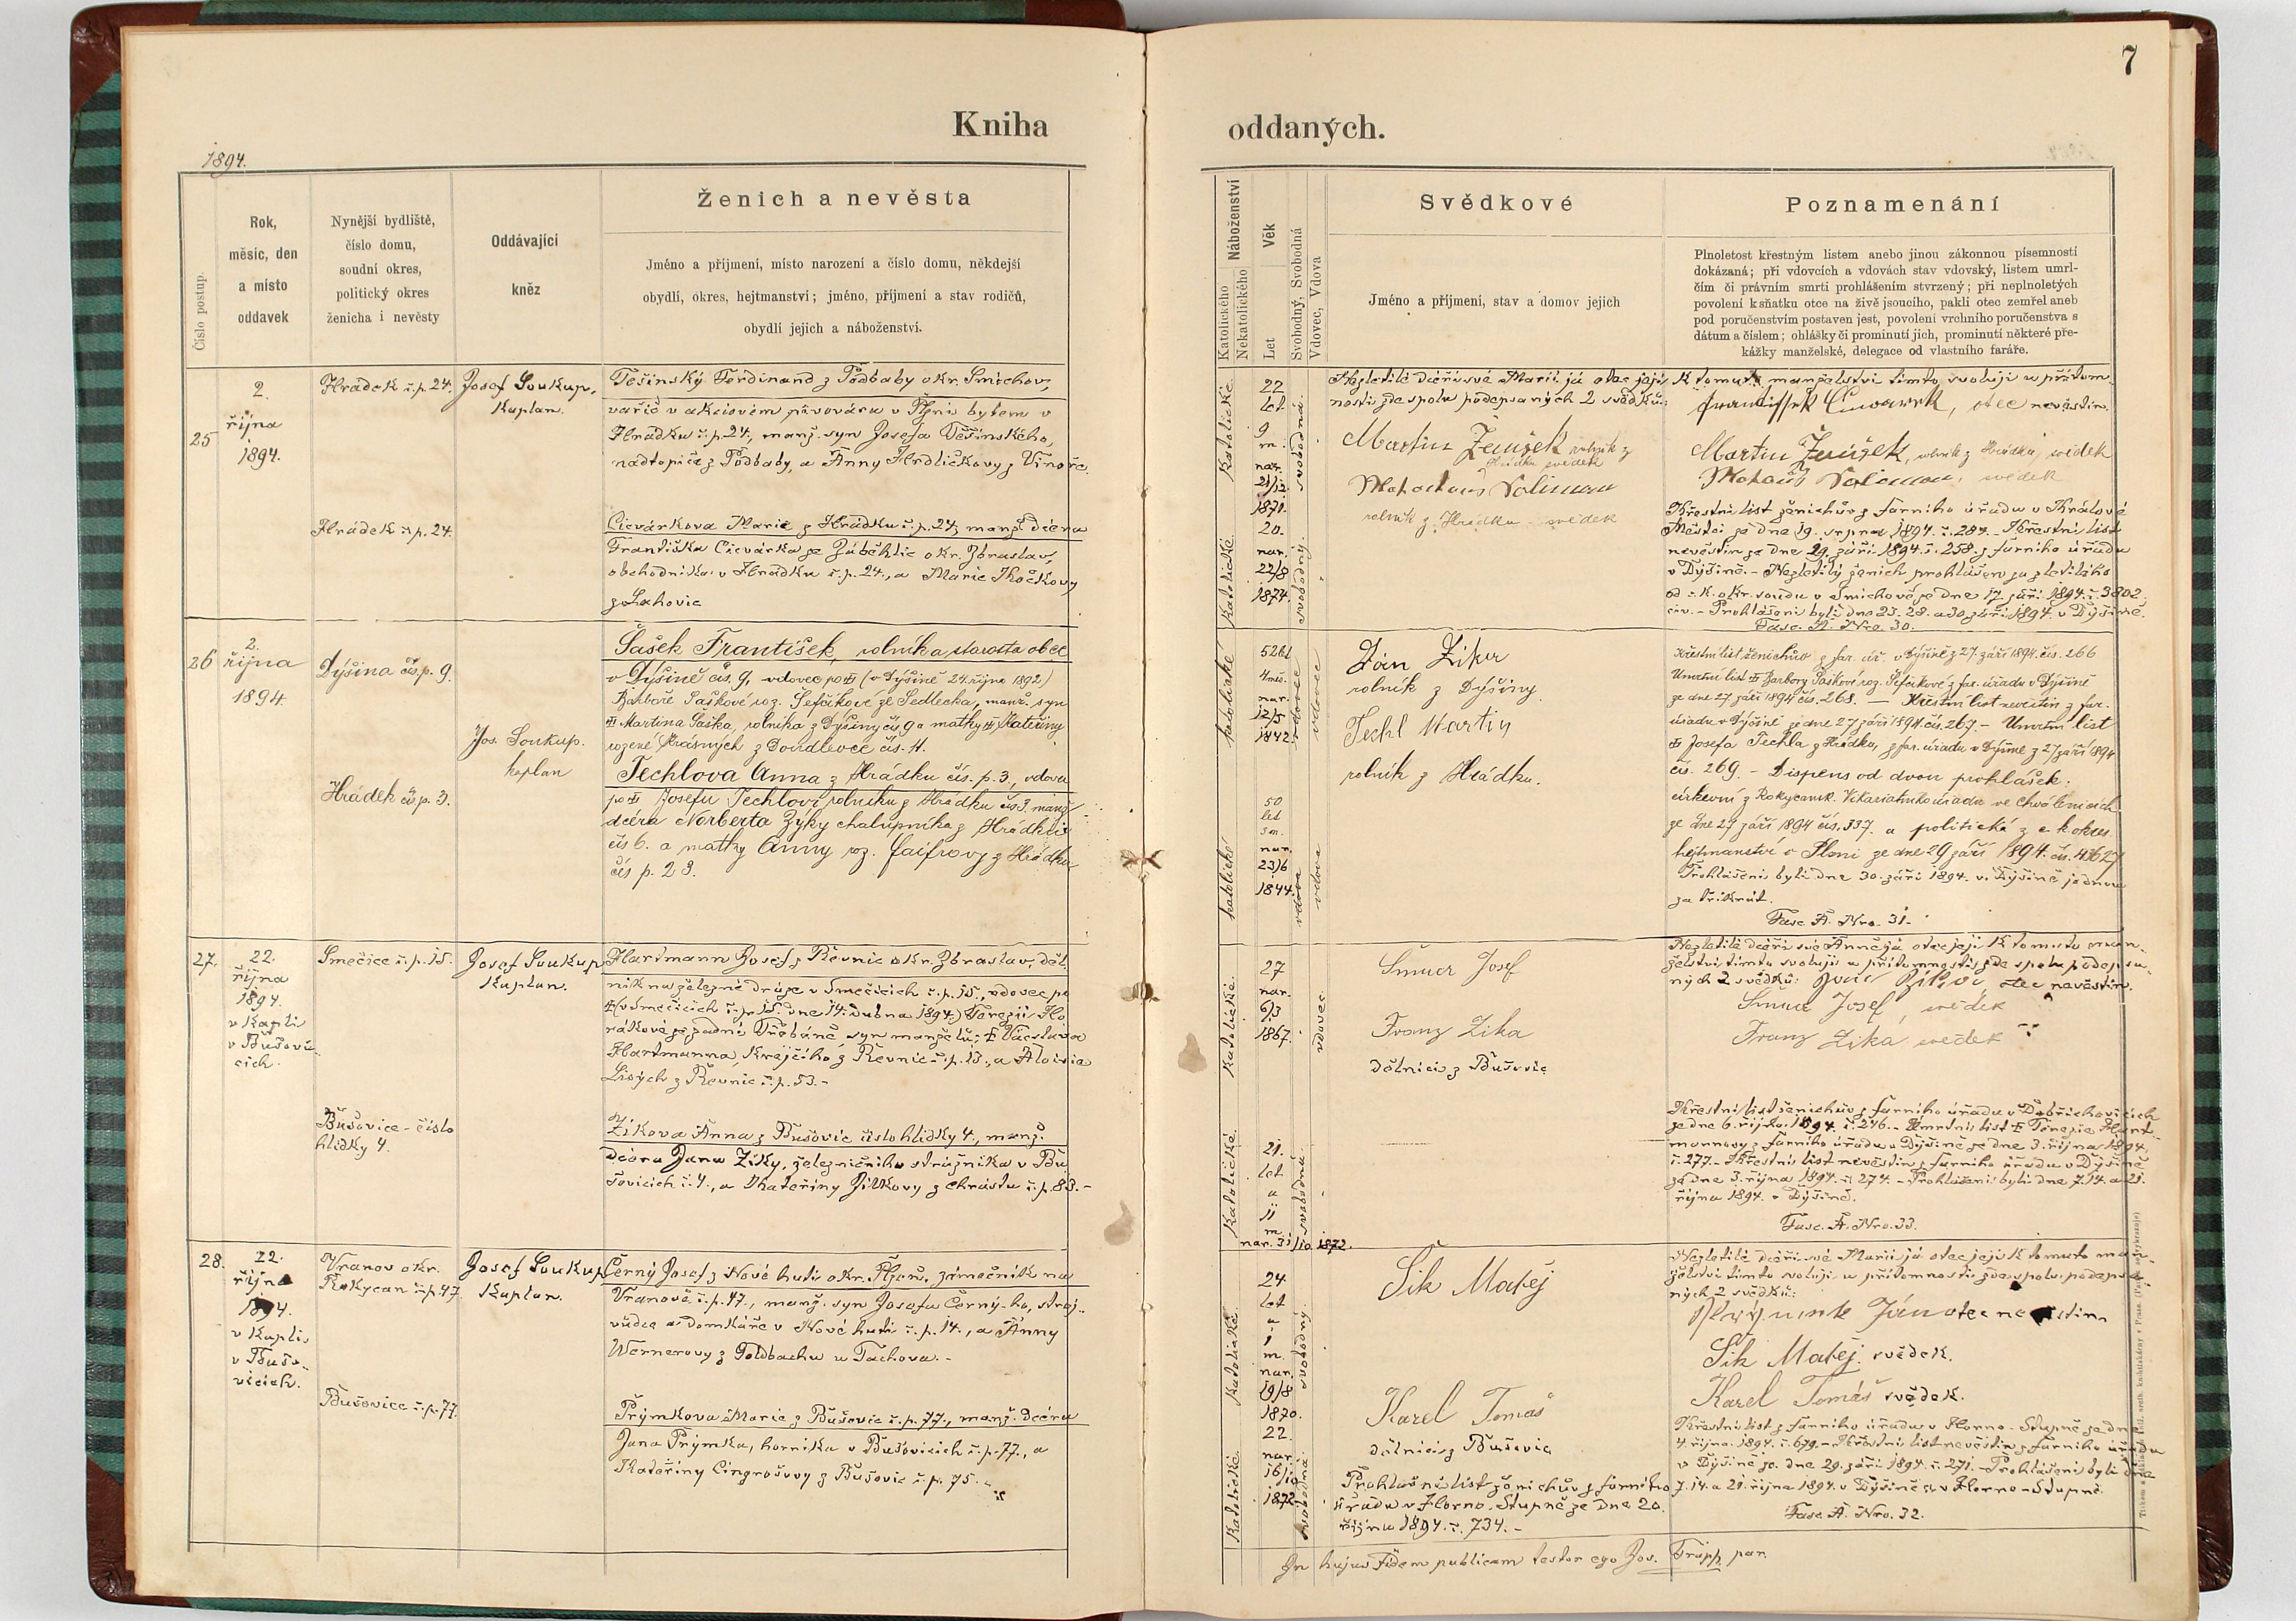 7
Kniha
oddaných.
1894.
Číslo postup.
Rok,
měsíc, den
a místo
oddavek
Nynější bydliště,
číslo domu,
soudní okres,
politický okres
ženicha i nevěsty
Oddávající
kněz
Ženich a nevěsta
Jméno a příjmení, místo narození a číslo domu, někdejší
obydlí, okres, hejtmanství; jméno, příjmení a stav rodičů,
obydlí jejich a náboženství.
Náboženství
Katolického
Nekatolického
Věk
Let
Svobodný, Svobodná
Vdovec, Vdova
Svědkové
Jméno a příjmení, stav a domov jejich
Poznamenání
Plnoletost křestným listem anebo jinou zákonnou písemností
dokázaná; při vdovcích a vdovách stav vdovský, listem umrl-
čím či právním smrti prohlášením stvrzený; při neplnoletých
povolení k sňatku otce na živě jsoucího, pakli otec zemřel aneb
pod poručenstvím postaven jest, povolení vrchního poručenstva s
dátum a číslem; ohlášky či prominutí jich, prominutí některé pře-
kážky manželské, delegace od vlastního faráře.
25
2.
října
1894.
Hrádek č.p. 24.
Josef Soukup,
kaplan.
Těšínský Ferdinand z Podbaby okr. Smíchov,
vařič v akciovém pivováru v Plzni bytem v
Hrádku č.p. 24., manž. syn Josefa Těšínského,
nadtopiče z Podbaby, a Anny Hrdličkovy z Vinoře.
Hrádek č.p. 24.
Cievárkova Marie z Hrádku č.p. 24, manž. dcera
Františka Cievárka ze Záběhlic okr. Zbraslav,
obchodníka v Hrádku č.p. 24., a Marie Kočkovy
z Lahovic
Katolické
22
let
9
m.
nar.
21/12.
1871.
svobodný
Katolické
20.
nar.
22/8
1874.
Nezletilé dceři své Marii já otec její
nosti zde spolu podepsaných 2 svědků:
Martin Ženíšek rolník z
Hrádku svědek
Salimon
rolník z Hrádku svědek
K tomuto manželství tímto svoluji u přítom-
otec nevěstin.
Martin Ženíšek, rolník z Hrádku, svědek
svědek
Křestní list ženichův z farního úřadu v Králové
Městci ze dne 19. srpna 1894. č. 284. - Křestní list
nevěstin ze dne 29. září 1894. č. 258. z farního úřadu
v Dýšině. - Nezletilý ženich prohlášen za zletilého
od c.k. okr. soudu v Smíchově ze dne 17. září 1894. č. 3802.
civ. - Prohlášeni byli dne 23. 28. a 30. září 1894. v Dýšině.
Fasc. A. Nro. 30.
26
2.
října
1894.
Dýšina čís. p. 9.
Jos. Soukup.
kaplan
Šašek František, rolník a starosta obce
v Dýšině čís. 9, vdovec po † (v Dýšině 24. října 1892)
Barboře Šaškové roz. Šefčíkové ze Sedlecka, manž. syn
† Martina Šaška, rolníka z Dýšiny čís. 9 a matky † Kateřiny
rozené Krásných z Doudlevce čís. 11.
Hrádek čís p. 3.
Techlova Anna z Hrádku čís. p. 3., vdova
po † Josefu Techlovi rolníku z Hrádku čís. 3 manž.
dcera Norberta Zýky chalupníka z Hrádku
čís 6. a matky Anny roz. Faifrovy z Hrádku
čís p. 23.
katolické
52 let
4 měs.
nar.
12/5
1842
vdovec
vdovec
katolické
50
let
3 m.
nar.
23/6
1844.
vdova
vdova
Ján Ziker
rolník z Dýšiny.
Techl Martin
rolník z Hrádku.
Křestní list ženichův z far. úř. v Dýšině z 27. září 1894. čís. 266
Umrtní list † Barbory Šaškové roz. Šefčíkové z far. úřadu v Dýšině
ze dne 27 září 1894 čís. 268. — Křestní list nevěstin z far.
úřadu v Dýšině ze dne 27 září 1894. čís. 267. - Umrtní list
† Josefa Techla z Hrádku, z far. úřadu v Dýšině z 27 září 1894
čís. 269. - Dispens od dvou prohlášek.
církevní z Rokycansk. Vikariátního úřadu ve Chválenicích
ze dne 27 září 1894 čís. 337. a politická z c k okres.
hejtmanství v Plzni ze dne 29 září 1894. čís.
Prohlášeni byli dne 30. září 1894. v Dýšině jednou
za třikrát.
Fasc A. Nro. 31.
27.
22.
října
1894.
v Kapli
v Bušovi-
cích.
Smečice č.p. 15.
Josef Soukup
Kaplan.
Hartmann Josef z Řevnic okr. Zbraslav, děl-
ník na železné dráze v Smečicích č.p. 15., vdovec po
† (v Smečicích č.p. 15. dne 14. dubna 1894.) Terezii Ho-
rákové ze zadní Třebáně, syn manželů: † Václava
Hartmanna, krejčího z Řevnic č.p. 13., a Aloisie
Lisých z Řevnic č.p. 53. -
Bušovice - číslo
hlídky 4.
Zíkova Anna z Bušovic číslo hlídky 4., manž.
dcera Jana Zíky, železničního strážníka v Bu-
šovicích č. 4., a Kateřiny Jílkovy z Chrástu č.p. 83. -
Katolické
27
nar.
6/3
1867.
vdovec
Katolické
21.
let
a
11
m.
nar. 31/10. 1872.
svobodná
Šmucr Josef
Franz Zika
dělníci z Bušovic
Nezletilé dceři své Anně já otec její k tomuto man-
želství tímto svoluji u přítomnosti zde spolu podepsa-
ných 2 svědků: otec nevěstin.
Šmucr Josef, svědek
Franz Zika, svědek
Křestní list ženichův z farního úřadu v Dobřichovicích
ze dne 6. října 1894. č. 246. - Umrtní list † Terezie Hart-
mannovy z farního úřadu v Dýšině ze dne 3. října 1894.
č. 277. - Křestní list nevěstin z farního úřadu v Dýšině
ze dne 3. října 1894. č. 274. - Prohlášeni byli dne 7. 14. a 21.
října 1894. v Dýšině.
Fasc. A. Nro. 33.
28.
22.
října
1894.
v Kapli
v Bušo-
vicích.
Vranov okr.
Rokycan č.p. 47.
Josef Soukup
Kaplan.
Černý Josef z Nové huti okr. Plzeň, zámečník na
Vranově č.p. 47., manž. syn Josefa Černý-ho, stroj-
vůdce a domkáře v Nové huti č.p. 14., a Anny
Wernerovy z Goldbachu u Tachova. -
Bušovice č.p. 77.
Prýmkova Marie z Bušovic č.p. 77., manž. dcera
Jana Prýmka, horníka v Bušovicích č.p. 77., a
Kateřiny Cingrošovy z Bušovic č.p. 75. -
Katolické
24.
let
a
1
m.
nar.
19/8
1870.
svobodný
Katolické
22.
nar.
16/10
1872
svobodná
Šik Matěj
Karel Tomáš
dělníci z Bušovic
Prohlašní list ženichův z farního
úřadu v Horno-Stupně ze dne 20.
října 1894. č. 734. -
Nezletilé dceři své Marii já otec její k tomuto man-
želství tímto svoluji u přítomnosti zde spolu podepsa-
ných 2 svědků:
Ján otec nevěstin
Šik Matěj. svědek.
Karel Tomáš svědek.
Křestní list z farního úřadu v Horno-Stupně ze dne
4. října 1894. č. 679. - Křestní list nevěstin z farního úřadu
v Dýšině ze dne 29. září 1894. č. 271. - Prohlášeni byli dne
7. 14. a 21. října 1894. v Dýšině a v Horno-Stupně.
Fasc. A. Nro. 32.
In hujus fidem publicam testor ego Jos. Tröpp, par.